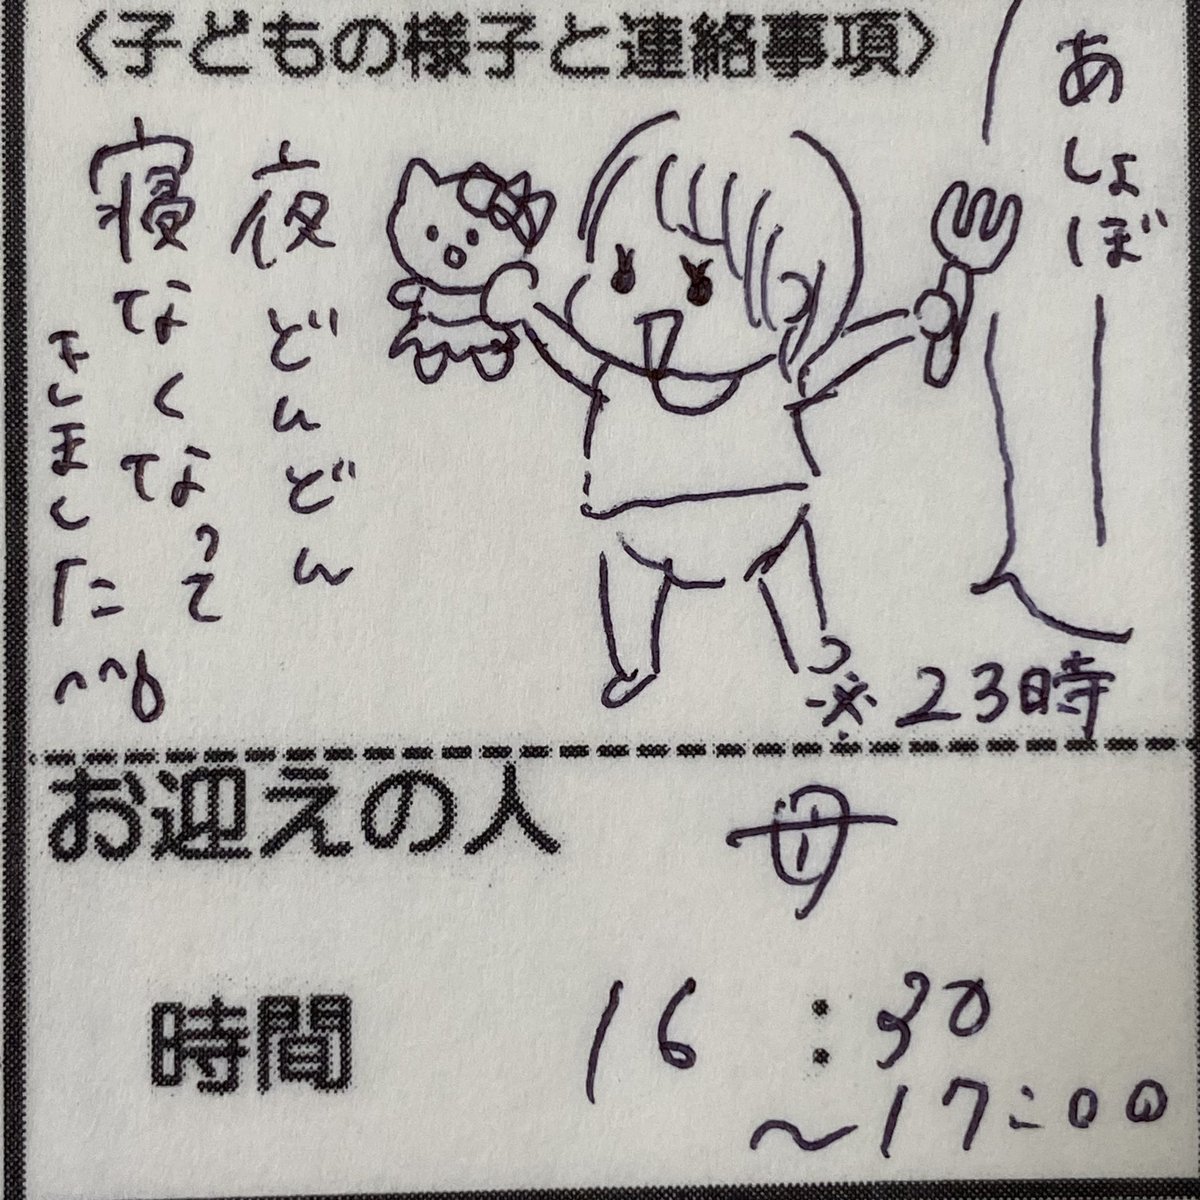 〈子どもの様子と連絡事項〉
あしょぼ
ー
夜どんどん
寝なくなって
きました
※23時
お迎えの人 母
時間 16:30
～17:00